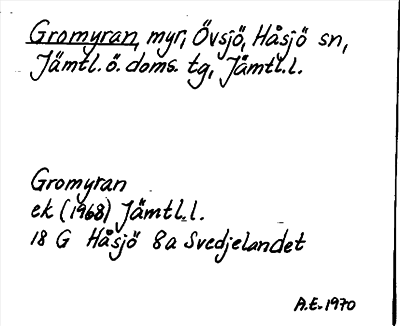 Gromyran, myr, Övsjö, Håsjö sn,
Jämtl. ö. doms. tg, Jämtl.l.
Gromyran
ek (1968) Jämtl.l.
18 G Håsjö 8a Svedjelandet
A.E. 1970